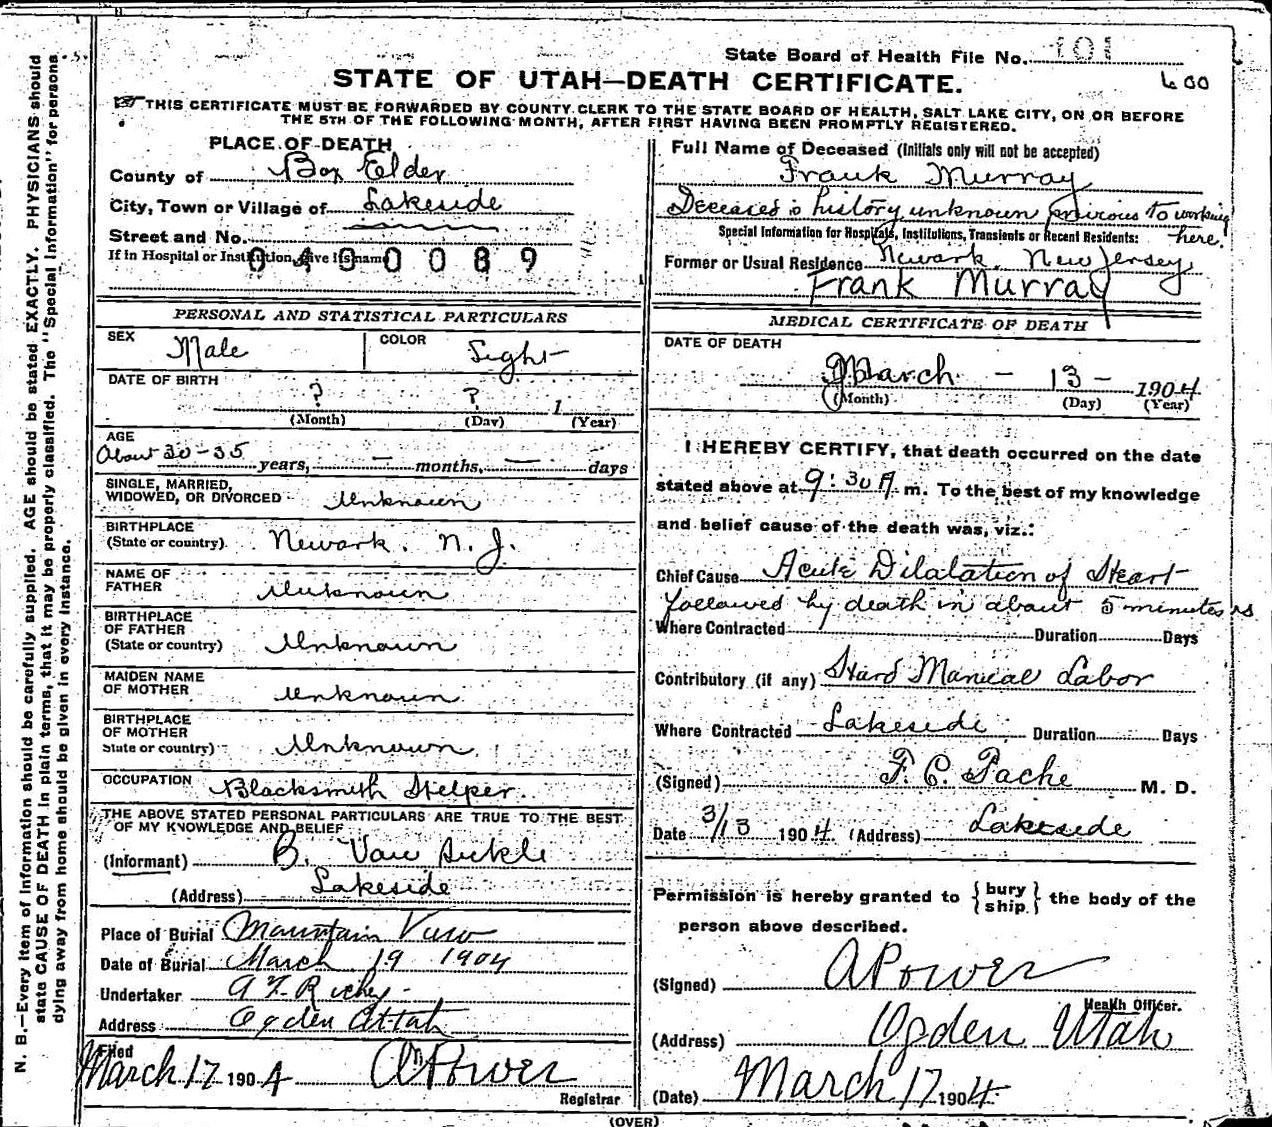 State Board of Health File No. 101
600
STATE OF UTAH—DEATH CERTIFICATE.
THIS CERTIFICATE MUST BE FORWARDED BY COUNTY CLERK TO THE STATE BOARD OF HEALTH, SALT LAKE CITY, ON OR BEFORE
THE 5TH OF THE FOLLOWING MONTH, AFTER FIRST HAVING BEEN PROMPTLY REGISTERED.
PLACE OF DEATH
County of Box Elder
City, Town or Village of Lakeside
Street and No.
If in Hospital or Institution, give its name
0490089
Full Name of Deceased (Initials only will not be accepted)
Frank Murray
Deceased's history unknown previous to working
here.
Special Information for Hospitals, Institutions, Transients or Recent Residents:
Former or Usual Residence Newark, New Jersey
Frank Murray
PERSONAL AND STATISTICAL PARTICULARS
SEX Male
COLOR Light
DATE OF BIRTH
? ? 1
(Month) (Day) (Year)
AGE
About 30-35 years, — months, — days
SINGLE, MARRIED,
WIDOWED, OR DIVORCED Unknown
BIRTHPLACE
(State or country) Newark. N.J.
NAME OF
FATHER Unknown
BIRTHPLACE
OF FATHER
(State or country) Unknown
MAIDEN NAME
OF MOTHER Unknown
BIRTHPLACE
OF MOTHER
State or country) Unknown
OCCUPATION Blacksmith Helper.
THE ABOVE STATED PERSONAL PARTICULARS ARE TRUE TO THE BEST
OF MY KNOWLEDGE AND BELIEF
(Informant) B. Van
(Address) Lakeside
Place of Burial Mountain View
Date of Burial March 19 1904
Undertaker
Address Ogden Utah
Filed
March 17 1904
Registrar
MEDICAL CERTIFICATE OF DEATH
DATE OF DEATH
March - 13 - 1904
(Month) (Day) (Year)
I HEREBY CERTIFY, that death occurred on the date
stated above at 9:30 A m. To the best of my knowledge
and belief cause of the death was, viz.:
Chief Cause Acute Dilalation of Heart
followed by death in about 5 minutes
Where Contracted Duration Days
Contributory (if any) Hard Manual Labor
Where Contracted Lakeside Duration Days
(Signed) F. C. Pache M. D.
Date 3/13 1904 (Address) Lakeside
Permission is hereby granted to {bury
ship} the body of the
person above described.
(Signed) A Power
Health Officer.
(Address) Ogden Utah
(Date) March 17 1904
(OVER)
N. B.—Every item of information should be carefully supplied. AGE should be stated EXACTLY. PHYSICIANS should
state CAUSE OF DEATH in plain terms, that it may be properly classified. The "Special Information" for persons
dying away from home should be given in every instance.